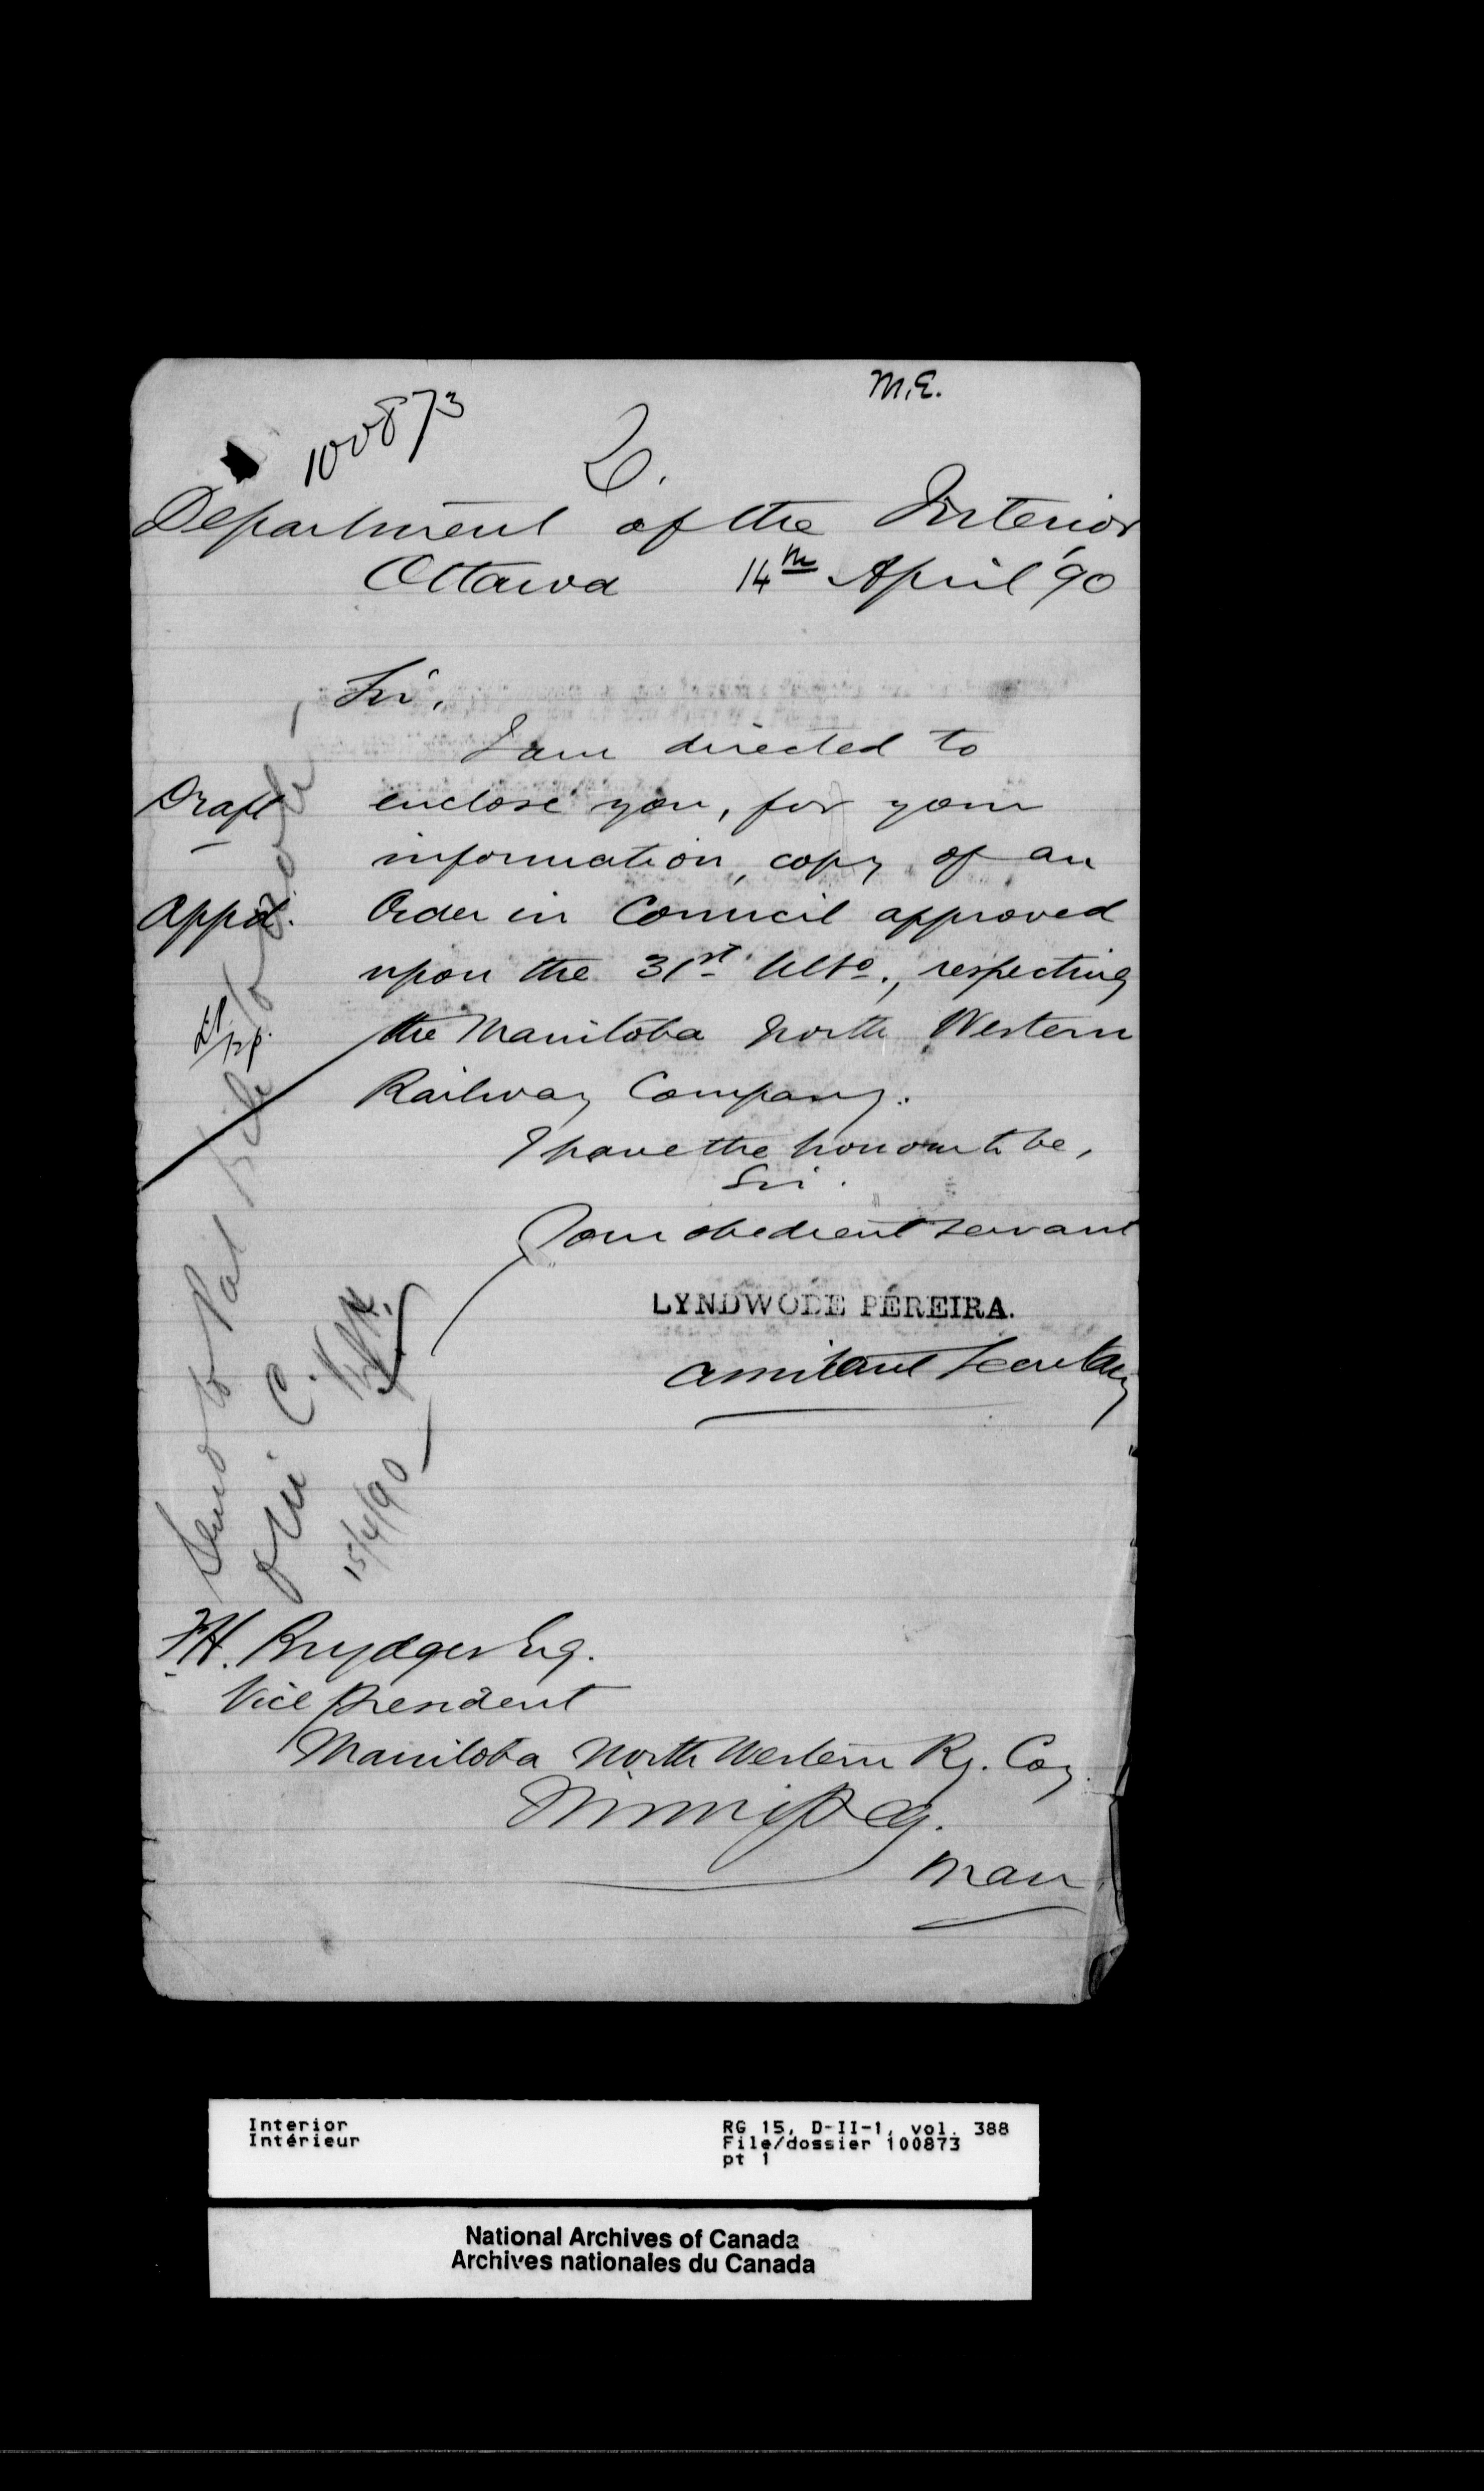 M.E.
100873
D.
Department of the Interior
Ottawa 14th April '90
Sir,
I am directed to
Draft
enclose you, for your
information, copy of an
Appd.
Order in Council approved
upon the 31st Ulto., respecting
the Manitoba North Western
Railway Company.
I have the honour to be,
Sir.
Your obedient servant
LYNDWODE PEREIRA.
Assistant Secretary
Send to Pat
15/4/90
F.H. Brydges Esq.
Vice President
Manitoba North Western Ry. Coy.
Winnipeg.
Man
Interior
Intérieur
RG 15, D-II-1, vol. 388
File/dossier 100873
pt 1
National Archives of Canada
Archives nationales du Canada